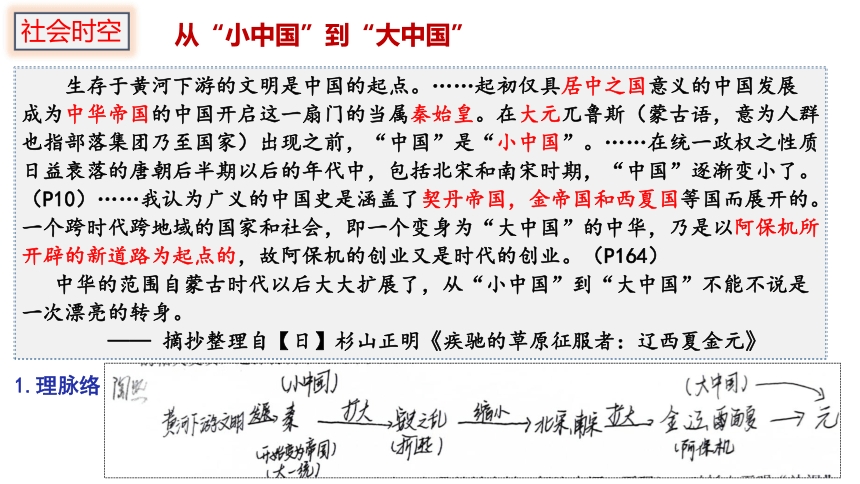 社会时空
从“小中国”到“大中国”
生存于黄河下游的文明是中国的起点。……起初仅具居中之国意义的中国发展
成为中华帝国的中国开启这一扇门的当属秦始皇。在大元兀鲁斯（蒙古语，意为人群
也指部落集团乃至国家）出现之前，“中国”是“小中国”。……在统一政权之性质
日益衰落的唐朝后半期以后的年代中，包括北宋和南宋时期，“中国”逐渐变小了。
（P10）……我认为广义的中国史是涵盖了契丹帝国，金帝国和西夏国等国而展开的。
一个跨时代跨地域的国家和社会，即一个变身为“大中国”的中华，乃是以阿保机所
开辟的新道路为起点的，故阿保机的创业又是时代的创业。（P164）
中华的范围自蒙古时代以后大大扩展了，从“小中国”到“大中国”不能不说是
一次漂亮的转身。
—— 摘抄整理自【日】杉山正明《疾驰的草原征服者：辽西夏金元》
1.理脉络
（小中国） （大中国）
黄河下游文明 发展 秦 扩大 安史之乱 缩小 北宋南宋 扩大 金辽西夏 元
（开始变为帝国） （折断） （阿保机）
（大一统）